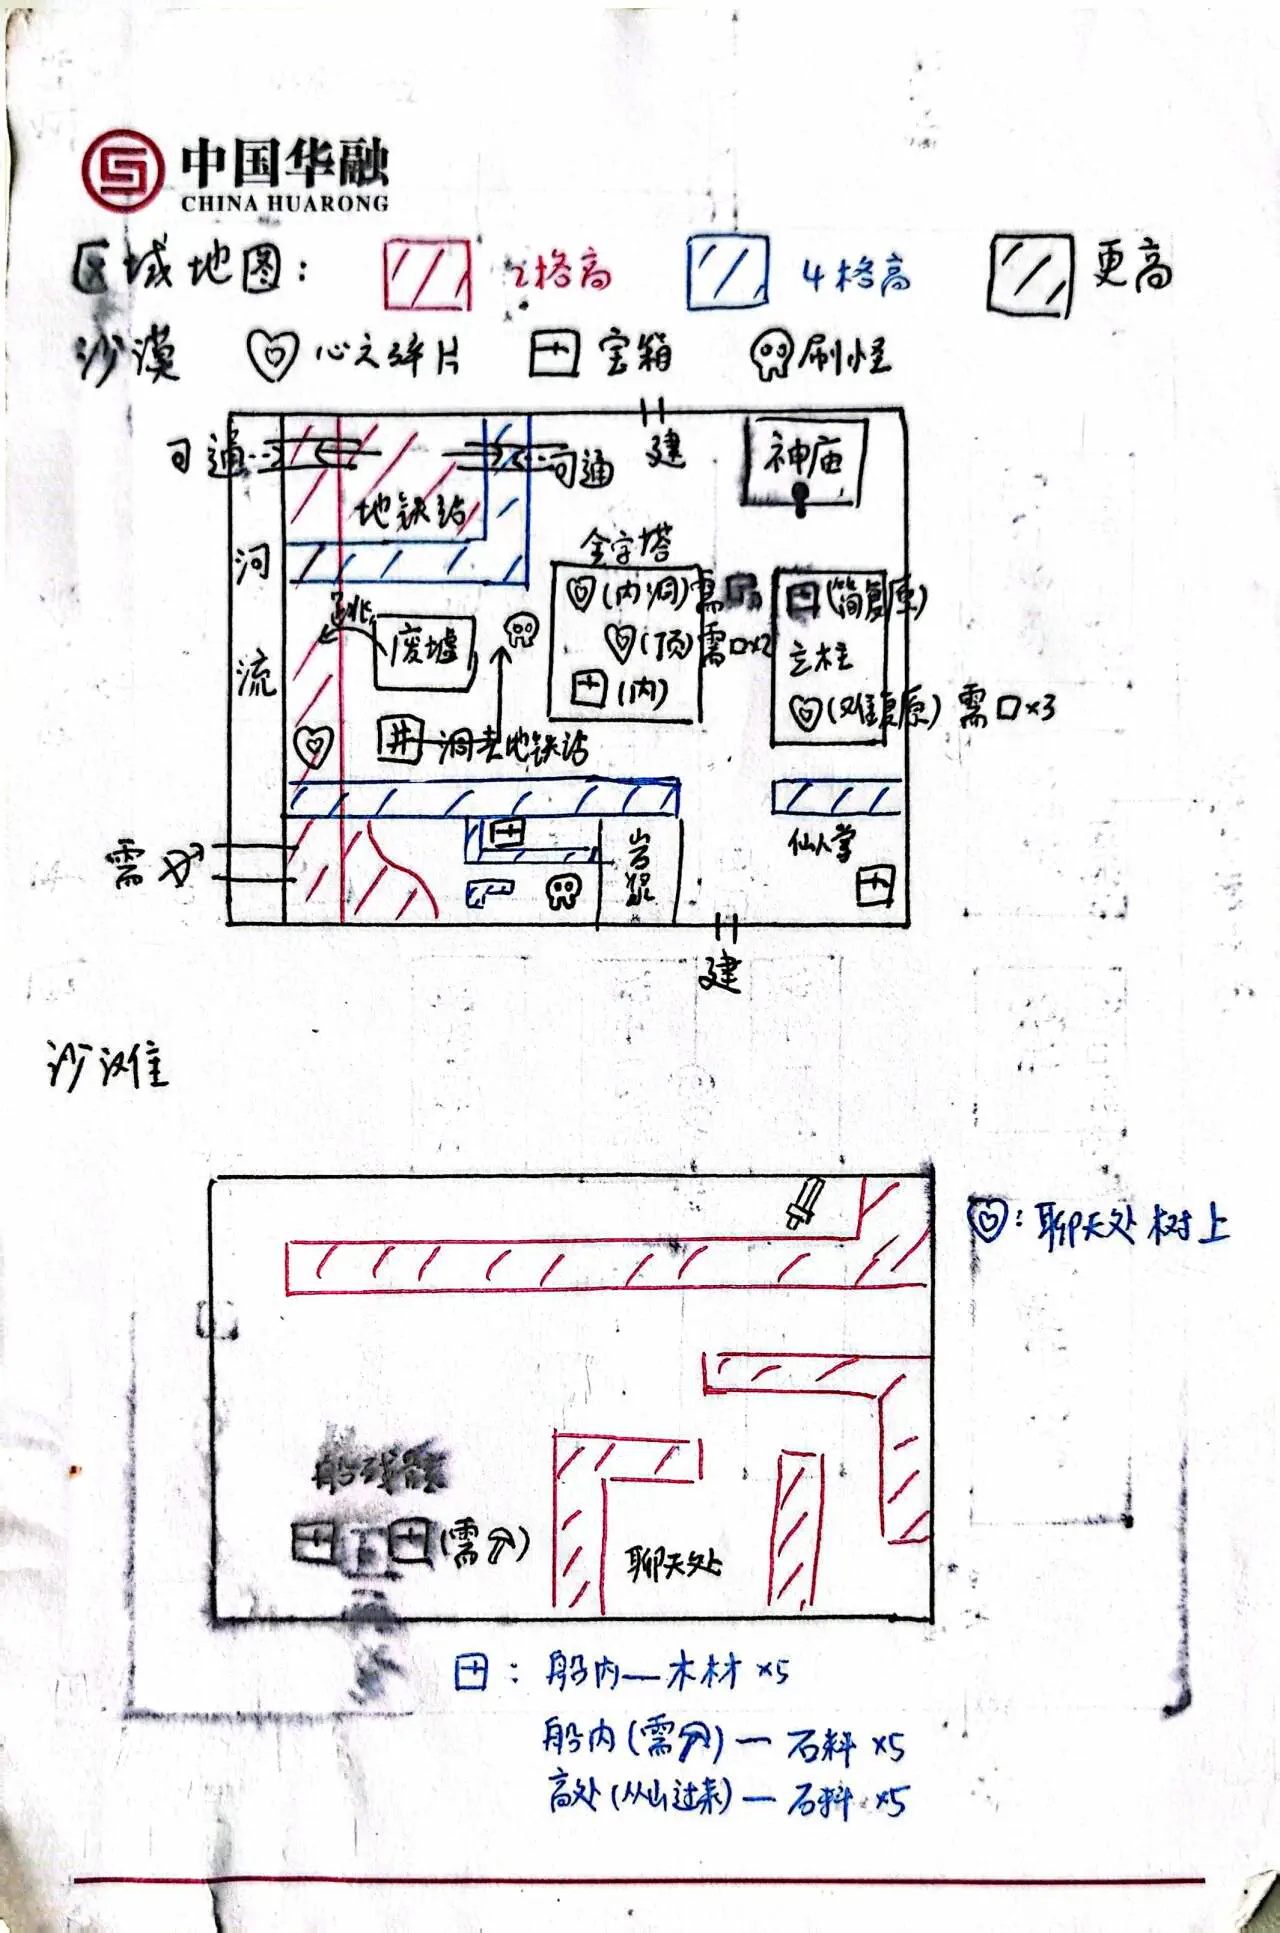 中国华融
CHINA HUARONG
区域地图： 2格高 4格高 更高
沙漠 心之碎片 宝箱 刷怪
建
可通 可通
神庙
地铁站
河流
金字塔
(内洞)需
(顶)需口×2
(内)
(简复原)
立柱
(难复原) 需口×3
跳
废墟
井 洞去地铁站
仙人掌
需
岩浆
建
沙滩
：聊天处树上
船残骸
(需分)
聊天处
：船内—木材×5
船内(需分)—石料×5
高处(从山过来)—石料×5